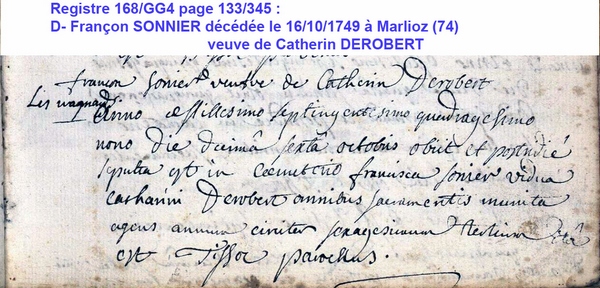 Registre 168/GG4 page 133/345 :
D- Françon SONNIER décédée le 16/10/1749 à Marlioz (74)
veuve de Catherin DEROBERT
françon sonier veufve de Catherin Derobert
Les
anno Millesimo septingentesimo quadragesimo
nono die decimâ sextâ octobris obiit et postridié
sepulta est in coemeterio francisca sonier vidua
catharini Derobert omnibus sacramentis munita
agens annum circiter sexagesimum tertium
est Tissot parochus.